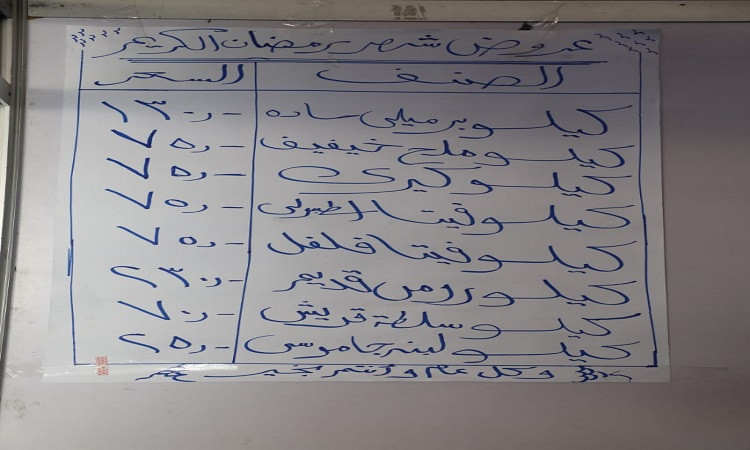 عروض شهر رمضان الكريم
الصنف السعر
كيلو برميلى ساده ١٣٠ر-
كيلو ملح خفيف ٧٥ر-
كيلو كيرى ٧٥ر-
كيلو فيتا ٧٥ر-
كيلو فيتا فلفل ٧٥ر-
كيلو رومى قديم ٢٣٠ر-
كيلو سلطة قريش ٧٠ر-
كيلو لبنه جاموسى ٢٥ر-
وكل عام وأنتم بخير